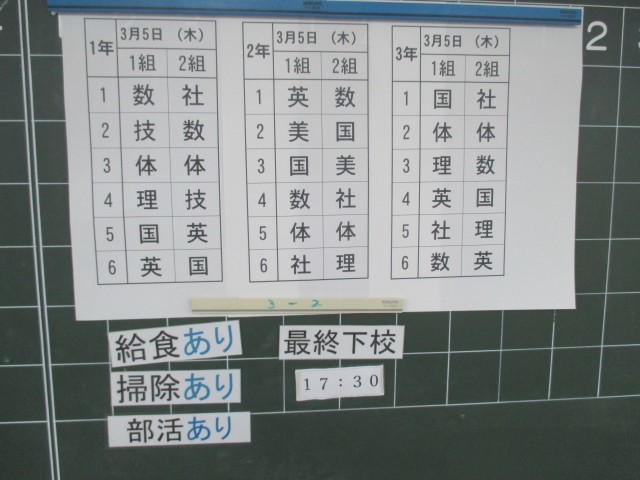 1年 3月5日 (木)
1組 2組
1 数 社
2 技 数
3 体 体
4 理 技
5 国 英
6 英 国
2年 3月5日 (木)
1組 2組
1 英 数
2 美 国
3 国 美
4 数 社
5 体 体
6 社 理
3年 3月5日 (木)
1組 2組
1 国 社
2 体 体
3 理 数
4 英 国
5 社 理
6 数 英
2
3-2
給食あり
最終下校
掃除あり
17:30
部活あり